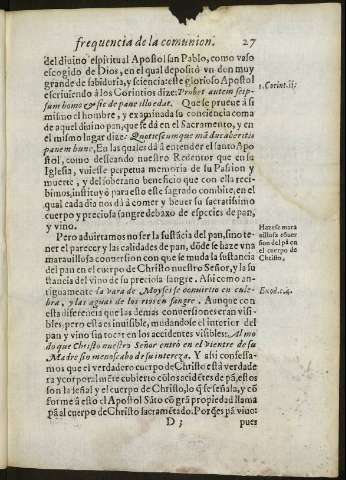 frequencia de la comunion. 27
del diuino espiritual Apostol san Pablo, como vaso
escogido de Dios, en el qual depositò vn don muy
grande de sabiduria, y sciencia: este glorioso Apostol
escriuiendo à los Corintios dize: Probet autem seip-
sum homo & sic de pane illo edat. Que se prueue à si
mismo el hombre, y examinada su conciencia coma
de aquel diuino pan, que se dà en el Sacramento, y en
el mismo lugar dize: Quotiescumque mãducabitis
panem hunc, En las quales dà à entender el santo Apo
stol, como desseando nuestro Redentor que en su
Iglesia, vuiesse perpetua memoria de su Passion y
muerte, y del soberano beneficio que con ella rece-
bimos, instituyò para esto este sagrado combite, en el
qual cada dia nos dà à comer y beuer su sacratissimo
cuerpo y preciosa sangre debaxo de especies de pan,
y vino.
Pero aduirtamos no ser la sustãcia del pan, sino te-
ner el parecer y las calidades de pan, dõde se haze vna
marauillosa conuersion con que se muda la sustancia
del pan en el cuerpo de Christo nuestro Señor, y la su
stancia del vino de su preciosa sangre. Assi como an-
tiguamente la vara de Moysei se conuirtio en cule-
bra, y las aguas de los rios en sangre. Aunque con
esta diferencia que las demas conuersiones eran visi-
bles, pero esta es inuisible, mudandose el interior del
pan y vino sin tocar en los accidentes visibles, Al mo
do que Christo nuestro Señor entrò en el vientre de su
Madre sin menoscabo de su intereza. Y assi confessa-
mos que el verdadero cuerpo de Christo està verdade
ra y corporalmẽte cubierto cõ los accidẽtes de pã, estos
son la señal y el cuerpo de Christo, lo q̃ se señala, y cõ
forme à esto el Apostol Sãto cõ grã propiedad llama
pã al cuerpo de Christo sacramẽtado. Porq̃ es pã viuo:
D 3 pues
1. Corint. 11;
Hazese mara
uillosa cõuer
sion del pã en
el cuerpo de
Christo.
Exod. c. 4.